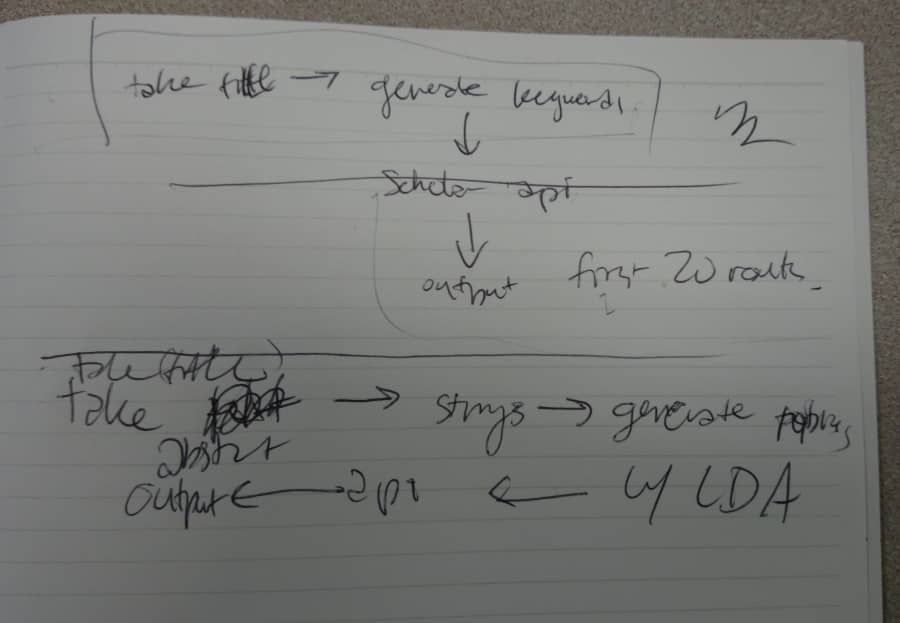 take title → generate keywords
↓
Scholar api
↓
output first 20 results
take (title)
take → strings → generate topics
abstract
output ← api ← w/ LDA